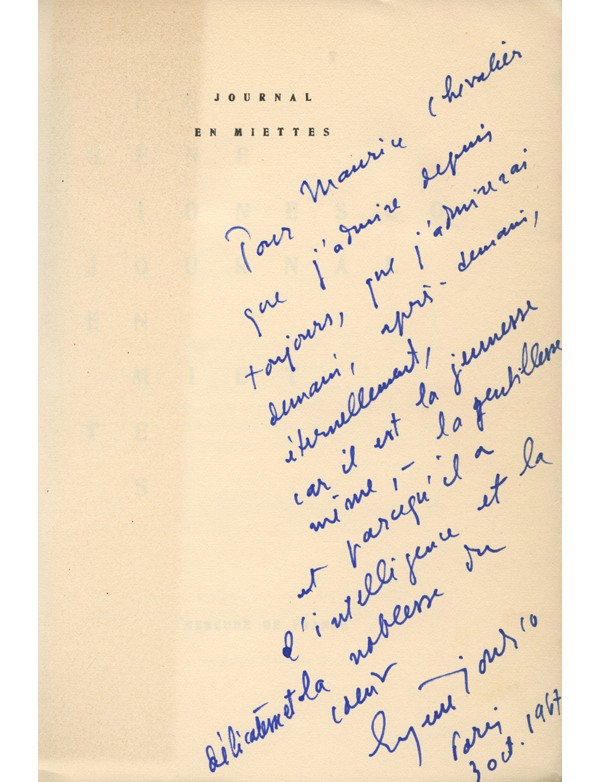 JOURNAL
EN MIETTES
Pour Maurice Chevalier
que j'admire depuis
toujours, que j'admirerai
demain, après-demain,
éternellement,
car il est la jeunesse
même, – la gentillesse
et parcequ'il a
l'intelligence et la
délicatesse et la noblesse du
coeur
Eugène Ionesco
Paris
3 oct. 1967